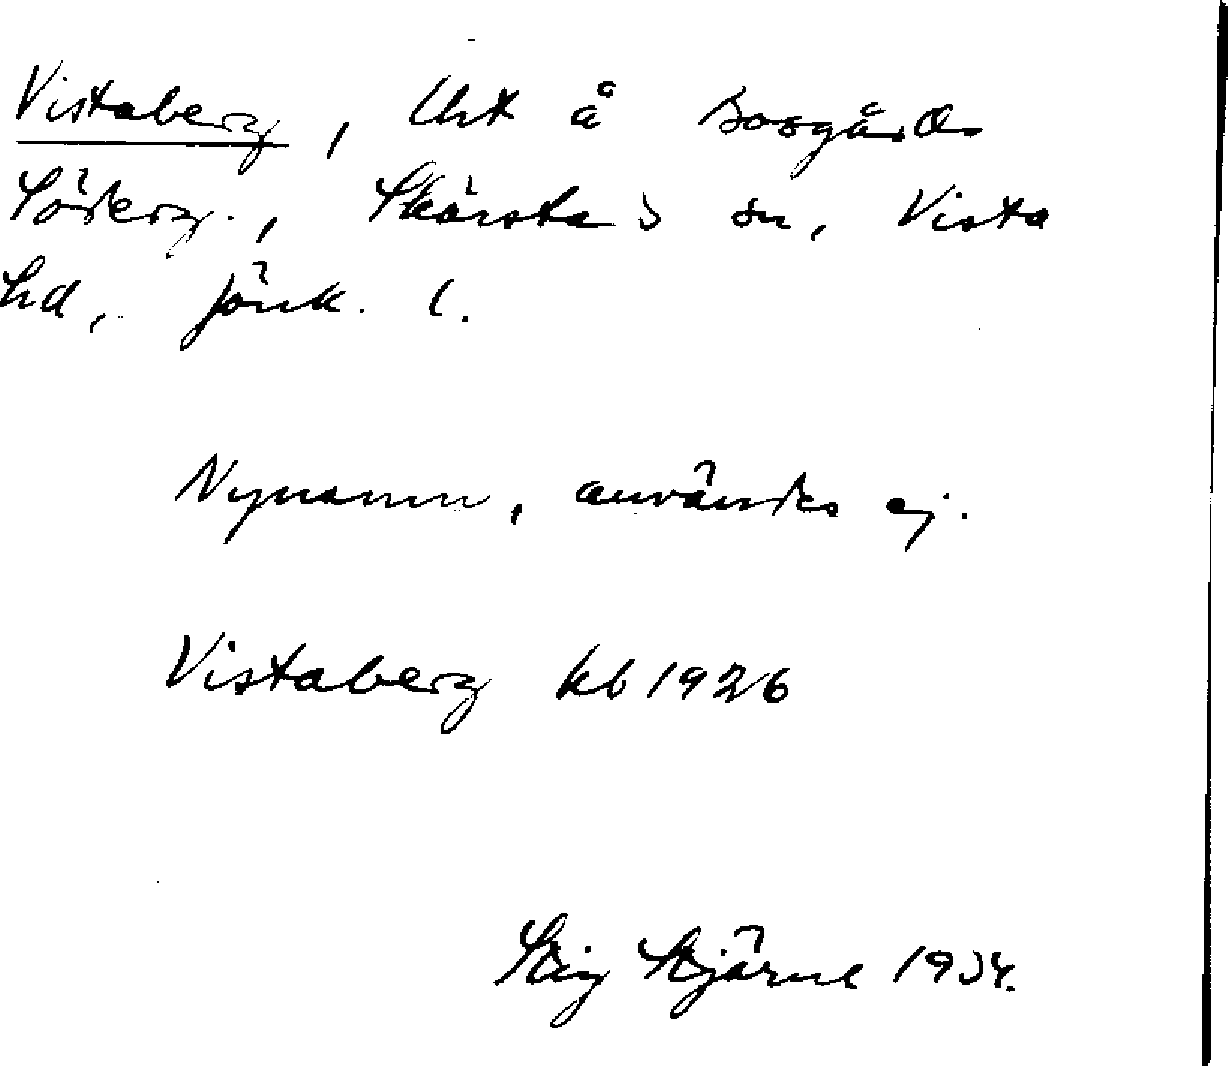 Vistaberg, Uht å Borgårds
Söderg., Skärstads sn, Vista
hd, Jönk. l.
Nynamn, användes ej.
Vistaberg kb 1926
Stig Stjärne 1934.